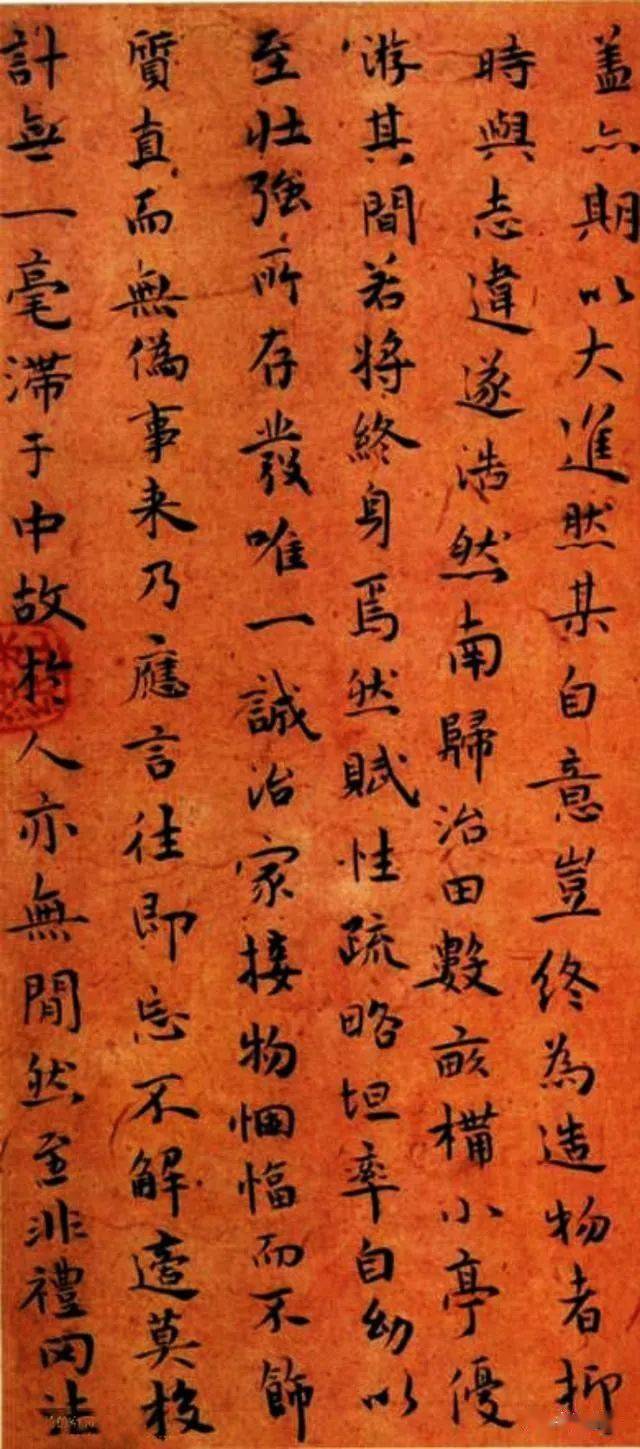 盖亦期以大進然某自意豈終為造物者抑
時與志違遂浩然南歸治田數畝構小亭優
游其間若將終身焉然賦性疏略坦率自幼以
至壯強所存發唯一誠治家接物悃愊而不飾
質直而無偽事来乃應言往即忘不解莫校
計無一毫滞于中故於人亦無間然至非禮罔